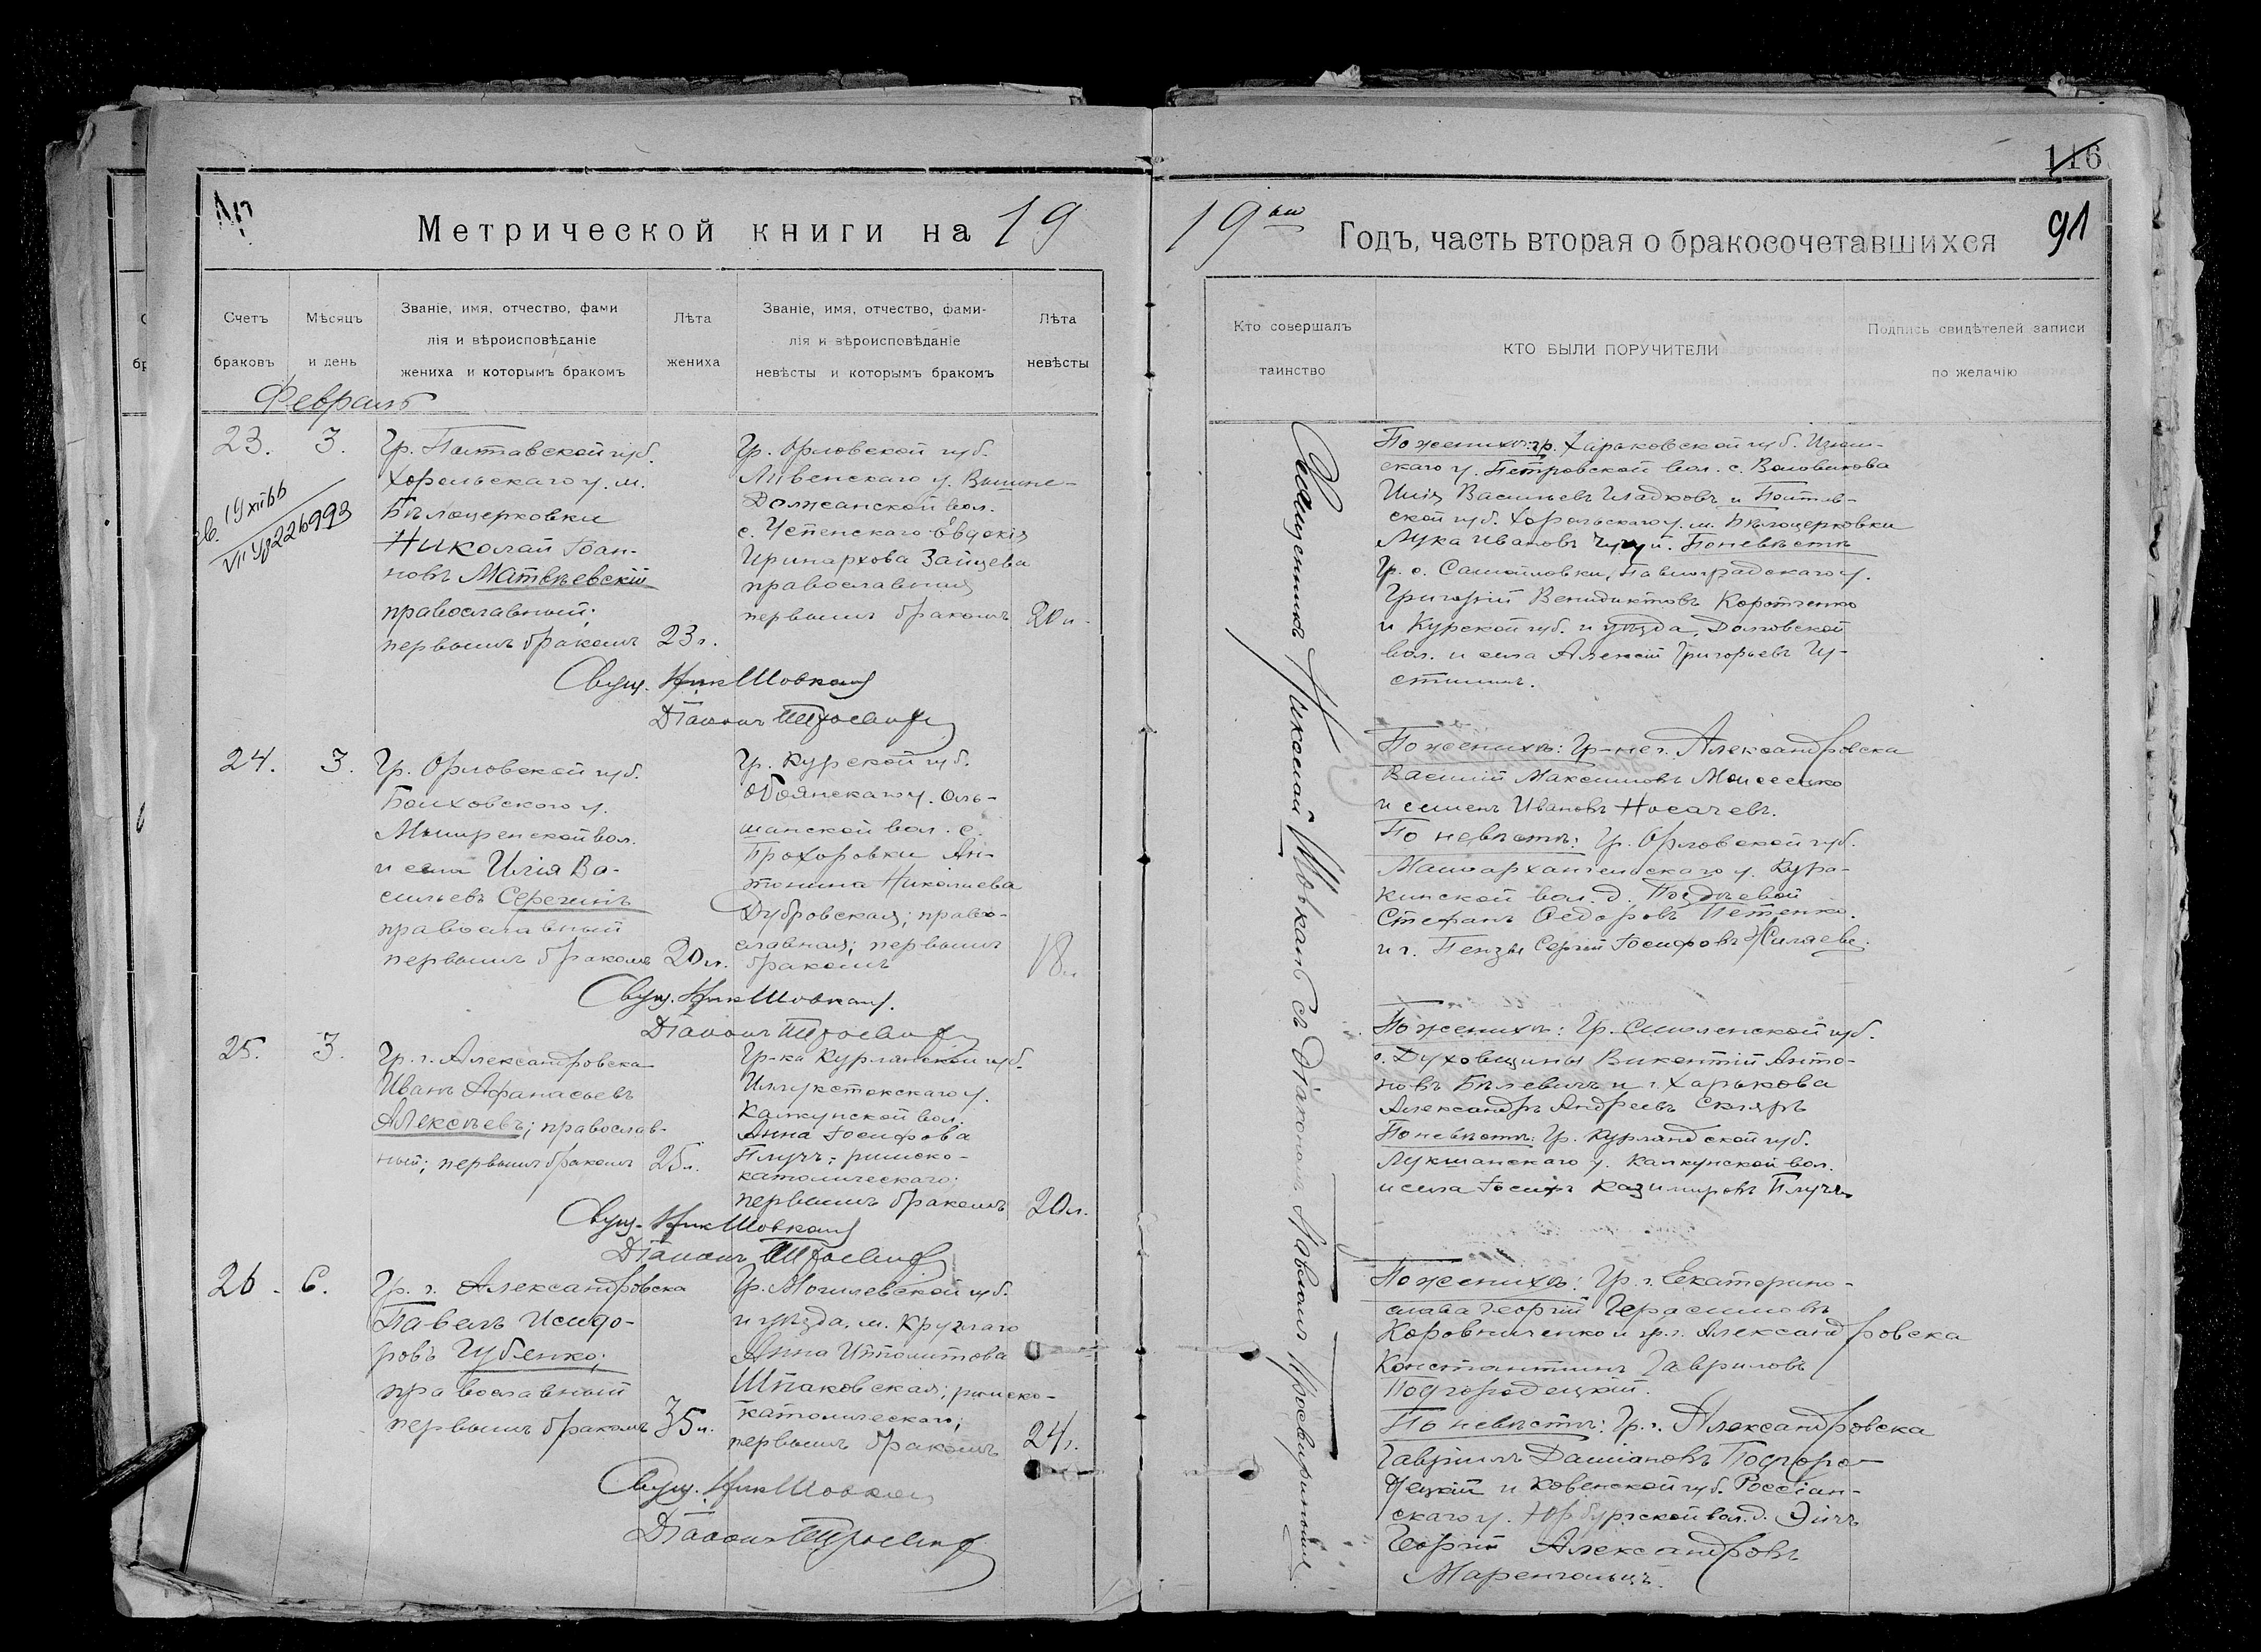 116
91
Метрической книги на 19
19 Годъ, часть вторая о бракосочетавшихся
Счетъ браковъ
Мѣсяцъ и день
Званіе, имя, отчество, фами
лія и вѣроисповѣданіе
жениха и которымъ бракомъ
Лѣта жениха
Званіе, имя, отчество, фами-
лія и вѣроисповѣданіе
невѣсты и которымъ бракомъ
Лѣта невѣсты
Кто совершалъ таинство
КТО БЫЛИ ПОРУЧИТЕЛИ
Подпись свидѣтелей записи
по желанію
Февраль
23. 3.
Гр. Полтавской губ.
Хорольскаго у. м.
Бѣлоцерковки
Николай Іоан-
новъ Матвѣевскій
православный;
первымъ бракомъ 23 г.
Гр. Орловской губ.
Ливенскаго у. Вышне-
Должанской вол.
с. Успенскаго Евдокія
Иринархова Зайцева
православная
первымъ бракомъ 20 л.
Свящ. Ник Шовкопл
Діаконъ
По женихѣ: гр. Харьковской губ. Изюм-
скаго у. Петровской вол. с.
Илія Васильевъ Гладковъ и Полтав-
ской губ. Хорольскаго у. м. Бѣлоцерковки
Лука Ивановъ По невѣстѣ
Гр. с. Самойловки, Павлоградскаго у.
Григорій Венидиктовъ Коротченко
и Курской губ. и уѣзда, Долговской
вол. и села Алексій Григорьевъ Гу-
24. 3.
Гр. Орловской губ.
Болховского у.
вол.
и села Илія Ва-
сильевъ Серегинъ
православный
первымъ бракомъ 20 л.
Гр. Курской губ.
Обоянскаго у. Оль-
шанской вол. с.
Прохоровки Ан-
тонина Николаева
Дубровская; право-
славная; первымъ
бракомъ 18 л.
Свящ. Ник Шовкопл
Діаконъ
По женихѣ: Гр-не г. Александровска
Василій Максимовъ Моисеенко
и Семенъ Ивановъ Носачевъ.
По невѣстѣ: Гр. Орловской губ.
Малоархангельскаго у. Кура-
кинской вол. д.
Стефанъ Федоровъ Петенко.
и г. Пензы Сергій Іосифовъ Жиляевъ.
25. 3.
Гр. г. Александровска
Иванъ Афанасьевъ
Алексѣевъ; православ-
ный; первымъ бракомъ 25 л.
Гр-ка Курлянской губ.
Иллукстокскаго у.
Калкунской вол.
Анна Іосифова
Плучъ; римско-
католическаго;
первымъ бракомъ 20 л.
Свящ. Ник Шовкопл
Діаконъ
По женихѣ: Гр. Смоленской губ.
г. Духовщины Викентій Анто-
новъ Бѣлевичъ и г. Харькова
Александръ Андреевъ Скляръ
По невѣстѣ: Гр. Курляндской губ.
Лукшанскаго у. Калкунской вол.
и села Іосифъ Казимировъ Плучъ
26. 6.
Гр. г. Александровска
Павелъ Исидо-
ровъ Губенко;
православный
первымъ бракомъ 35 л.
Гр. Могилевской губ.
и уѣзда, м. Круглаго
Анна Ипполитова
Шпаковская; римско-
католическаго;
первымъ бракомъ 24 г.
Свящ. Ник Шовкопл
Діаконъ
По женихѣ: Гр. г. Екатерино-
слава Георгій Герасимовъ
Коровниченко и гр. г. Александровска
Константинъ Гавриловъ
Подгородецкій.
По невѣстѣ: Гр. г. Александровска
Гавріилъ Даміановъ Подгоро-
децкій и Ковенской губ. Россіан-
скаго у. Юрбургской вол. д.
Георгій Александровъ
Священникъ Николай съ Діакономъ